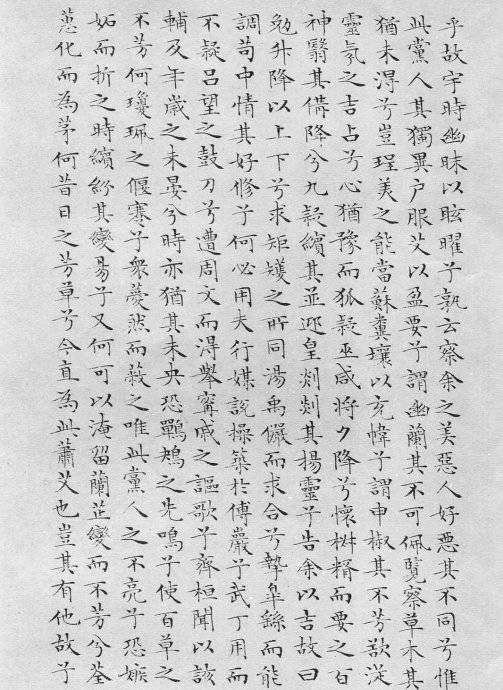 乎故宇時幽昧以眩曜兮孰云察余之美惡人好惡其不同兮惟
此黨人其獨異戶服艾以盈要兮謂幽蘭其不可佩覽察草木其
猶未淂兮豈珵美之能當蘇糞壤以充幃兮謂申椒其不芳欲従
靈氛之吉占兮心猶豫而狐疑巫咸將夕降兮懷椒糈而要之百
神翳其備降兮九疑繽其並迎皇剡剡其揚靈兮告余以吉故曰
勉升降以上下兮求矩矱之所同湯禹儼而求合兮摯皐繇而能
調苟中情其好修兮何必用夫行媒說操築於傅巖兮武丁用而
不疑呂望之鼓刀兮遭周文而淂舉甯戚之謳歌兮齊桓聞以該
輔及年歲之未晏兮時亦猶其未央恐鵜鴂之先鳴兮使百草之
不芳何瓊珮之偃蹇兮衆薆然而蔽之唯此黨人之不亮兮恐嫉
妬而折之時繽紛其變易兮又何可以淹留蘭芷變而不芳兮荃
蕙化而為茅何昔日之芳草兮今直為此蕭艾也豈其有他故兮